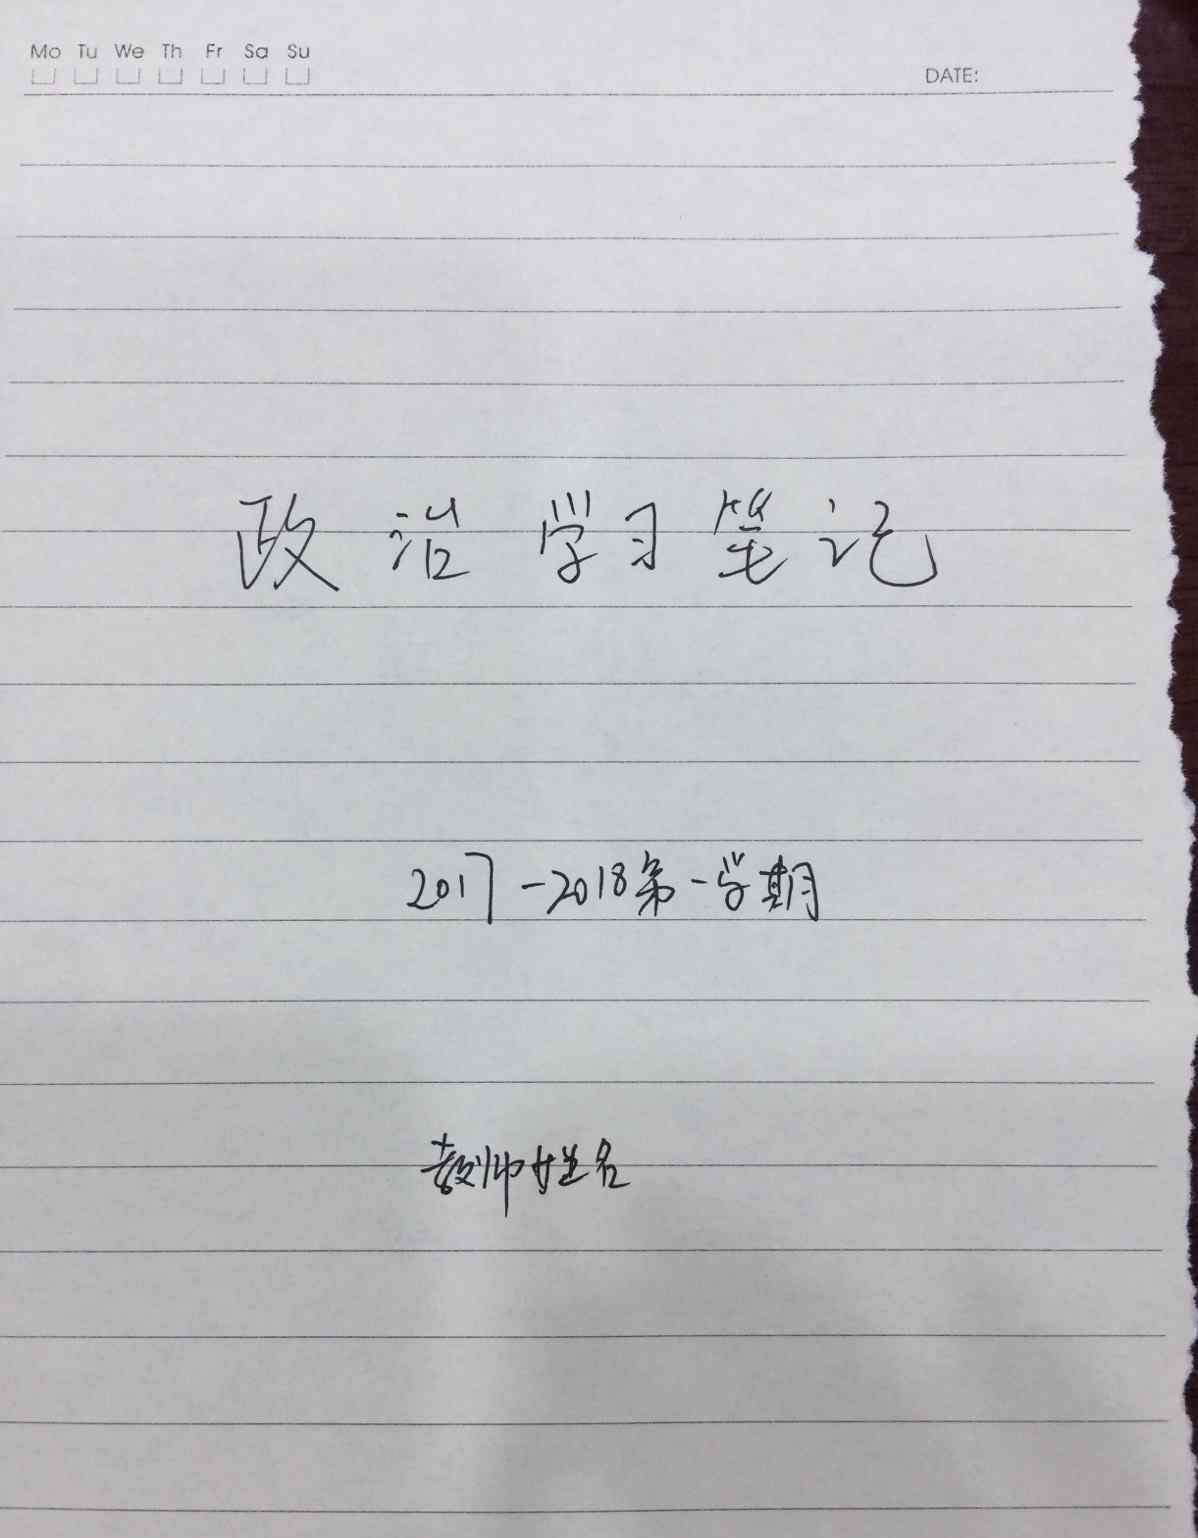 Mo Tu We Th Fr Sa Su
DATE:
政治学习笔记
2017-2018第一学期
教师姓名